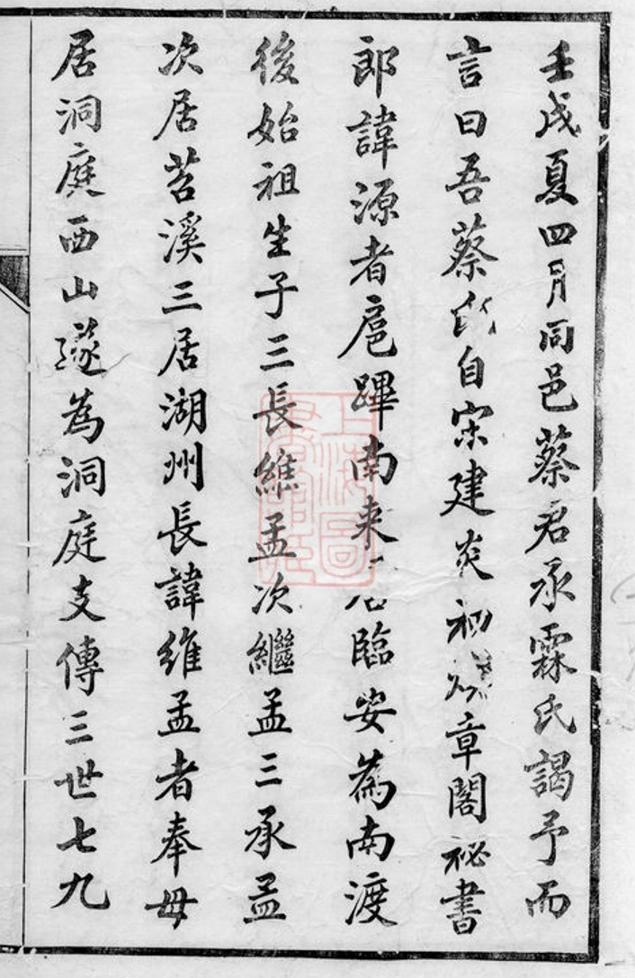 壬戌夏四月同邑蔡君承霖氏謁予而
言曰吾蔡氏自宋建炎初章閣祕書
郎諱源者扈蹕南來居臨安為南渡
後始祖生子三長維孟次繼孟三承孟
次居苕溪三居湖州長諱維孟者奉母
居洞庭西山遂為洞庭支傳三世七九
上海圖書館藏